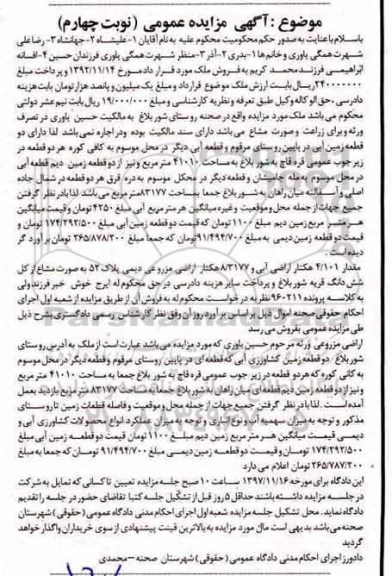 موضوع : آگهی مزایده عمومی (نوبت چهارم)
باسلام با عنایت به صدور حکم محکومیت محکوم علیه به نام آقایان ۱-علیشاه ۲-جهانشاه ۳- رضا علی
شهرت همگی یاوری و خانم ها ۱-بدری ۲-آذر ۳-منظر شهرت همگی یاوری فرزندان حسین ۴-افسانه
ابراهیمی فرزند محمد کریم به فروش ملک مورد قرارداد مورخ ۱۳۹۲/۱۱/۱۴ و پرداخت مبلغ
۲۴۰۰۰۰۰۰۰ ریال بابت ارزش ملک موضوع قرارداد و مبلغ یک میلیون و پانصد هزار تومان بابت هزینه
دادرسی ،حق الوکاله وکیل طبق تعرفه و نظریه کارشناسی و مبلغ ۱۹/۰۰۰/۰۰۰ ریال بابت نیم عشر دولتی
محکوم می باشد ملک مورد مزایده واقع در صحنه روستای شور بلاغ به مالکیت حسین یاوری در تصرف
ورثه و برای زراعت وصورت مشاع می باشد دارای سند مالکیت بوده ودر اجاره نمی باشد لذا دارای دو
قطعه زمین آبی در پایین روستای مرقوم و قطعه آبی دیگر در محل موسوم به کافی کوره هر دو قطعه در
زیر جوب عمومی قره قاچ به شور بلاغ به مساحت ۴۱۰۱۰ متر مربع و نیز از دو قطعه زمین دیم قطعه آبی
در محل موسوم به مله جامیشان و قطعه دیگر در محل موسوم به دره قرق هر دو قطعه در شمال جاده
اصلی و آسفالته میان راهان به شور بلاغ جمعا بمساحت ۸۳۱۷۷ متر مربع می باشد لذا با در نظر گرفتن
جمیع جهات از جمله محل و موقعیت و غیره میانگین هر متر مربع آبی مبلغ ۴۲۵۰ تومان و قیمت میانگین
هر متر مربع زمین دیم مبلغ ۱۱۰۰ تومان که قیمت دو قطعه زمین آبی مبلغ ۱۷۴/۲۹۲/۵۰۰ تومان و
قیمت دو قطعه زمین دیمی به مبلغ ۹۱/۴۹۴/۷۰۰ تومان که جمعا مبلغ ۲۶۵/۸۷۸/۳۰۰ تومان بر آورد گر
دیده است .
مقدار ۴/۱۰۱ هکتار اراضی آبی و ۸/۳۱۷۷ هکتار اراضی مزروعی دیمی پلاک ۵۲ به صورت مشاع از کل
شش دانگ قریه شور بلاغ و پرداخت سایر هزینه دادرسی در حق محکوم له ایرج خوش خبر فرزند ولی
به کلاسه پرونده ۹۶۰۲۱۱ نظر به در خواست محکوم له به فروش آن از طریق مزایده از شعبه اول اجرای
احکام حقوقی صحنه اموال ذیل بر اساس بر آورد روز آن وفق نظر کارشناس رسمی دادگستری بشرح ذیل
طی مزایده عمومی بفروش می رسد
اراضی مزروعی ورثه مرحوم حسین یاوری که مورد مزایده می باشد عبارت است از ملک به آدرس روستای
شور بلاغ دو قطعه زمین کشاورزی آبی که قطعه ای در پایین روستای مرقوم و قطعه دیگر در محل موسوم
به کانی کوره که هر دو قطعه در زیر جوب عمومی قره قاچ به شور بلاغ جمعا به مساحت ۴۱۰۱۰ متر مربع
و نیز از دو قطعه زمین دیم قطعه ای میان راهان به شور بلاغ جمعا به مساحت ۸۳۱۷۷ متر مربع بازدید بعمل
آمده است . لذا با در نظر گرفتن جمیع جهات از جمله محل و موقعیت و فاصله قطعات زمین تا روستای
مذکور و توجه به میزان سهمیه آب و نوع آبیاری و توجه به میزان عملکرد انواع محصولات کشاورزی آبی و
دیمی قیمت میانگین هر متر مربع زمین دیم مبلغ ۱۱۰۰ تومان قیمت دو قطعه زمین آبی مبلغ
۱۷۴/۲۹۲/۵۰۰ تومان و قیمت دو قطعه زمین دیمی مبلغ ۹۱/۴۹۴/۷۰۰ تومان که جمعا به مبلغ
۲۶۵/۷۸۷/۲۰۰ تومان اعلام می دارد
این دادگاه برای مورخه ۱۳۹۷/۱۱/۱۶ ساعت ۱۰ صبح جلسه مزایده تعیین تا کسانی که تمایل به شرکت
در جلسه مزایده داشته باشند حداقل ۵ روز قبل از تشکیل جلسه کتبا تقاضای حضور در جلسه را تقدیم
دادگاه نماید. محل تشکیل جلسه مزایده شعبه اول اجرای احکام مدنی دادگاه عمومی (حقوقی) شهرستان
صحنه می باشد بدیهی است مال مورد مزایده به بالاترین قیمت پیشنهادی از سوی خریداران واگذار خواهد
گردید
دادورز اجرای احکام مدنی دادگاه عمومی (حقوقی) شهرستان صحنه – محمدی